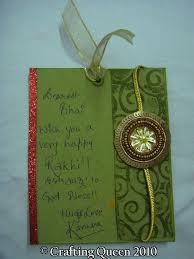 Dearest
Bhai
Wish you a
very happy
Rakhi!!
to
God Bless!!
Hugs & Love
© Crafting Queen 2010